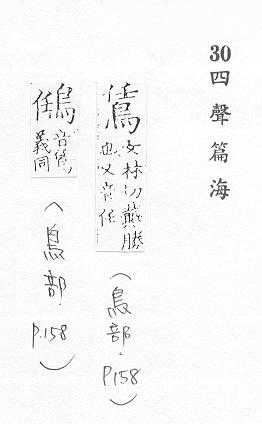 30四聲篇海
女林切戴勝
也又音任
(鳥部.P158)
鵀
音
義同
(鳥部.P.158)